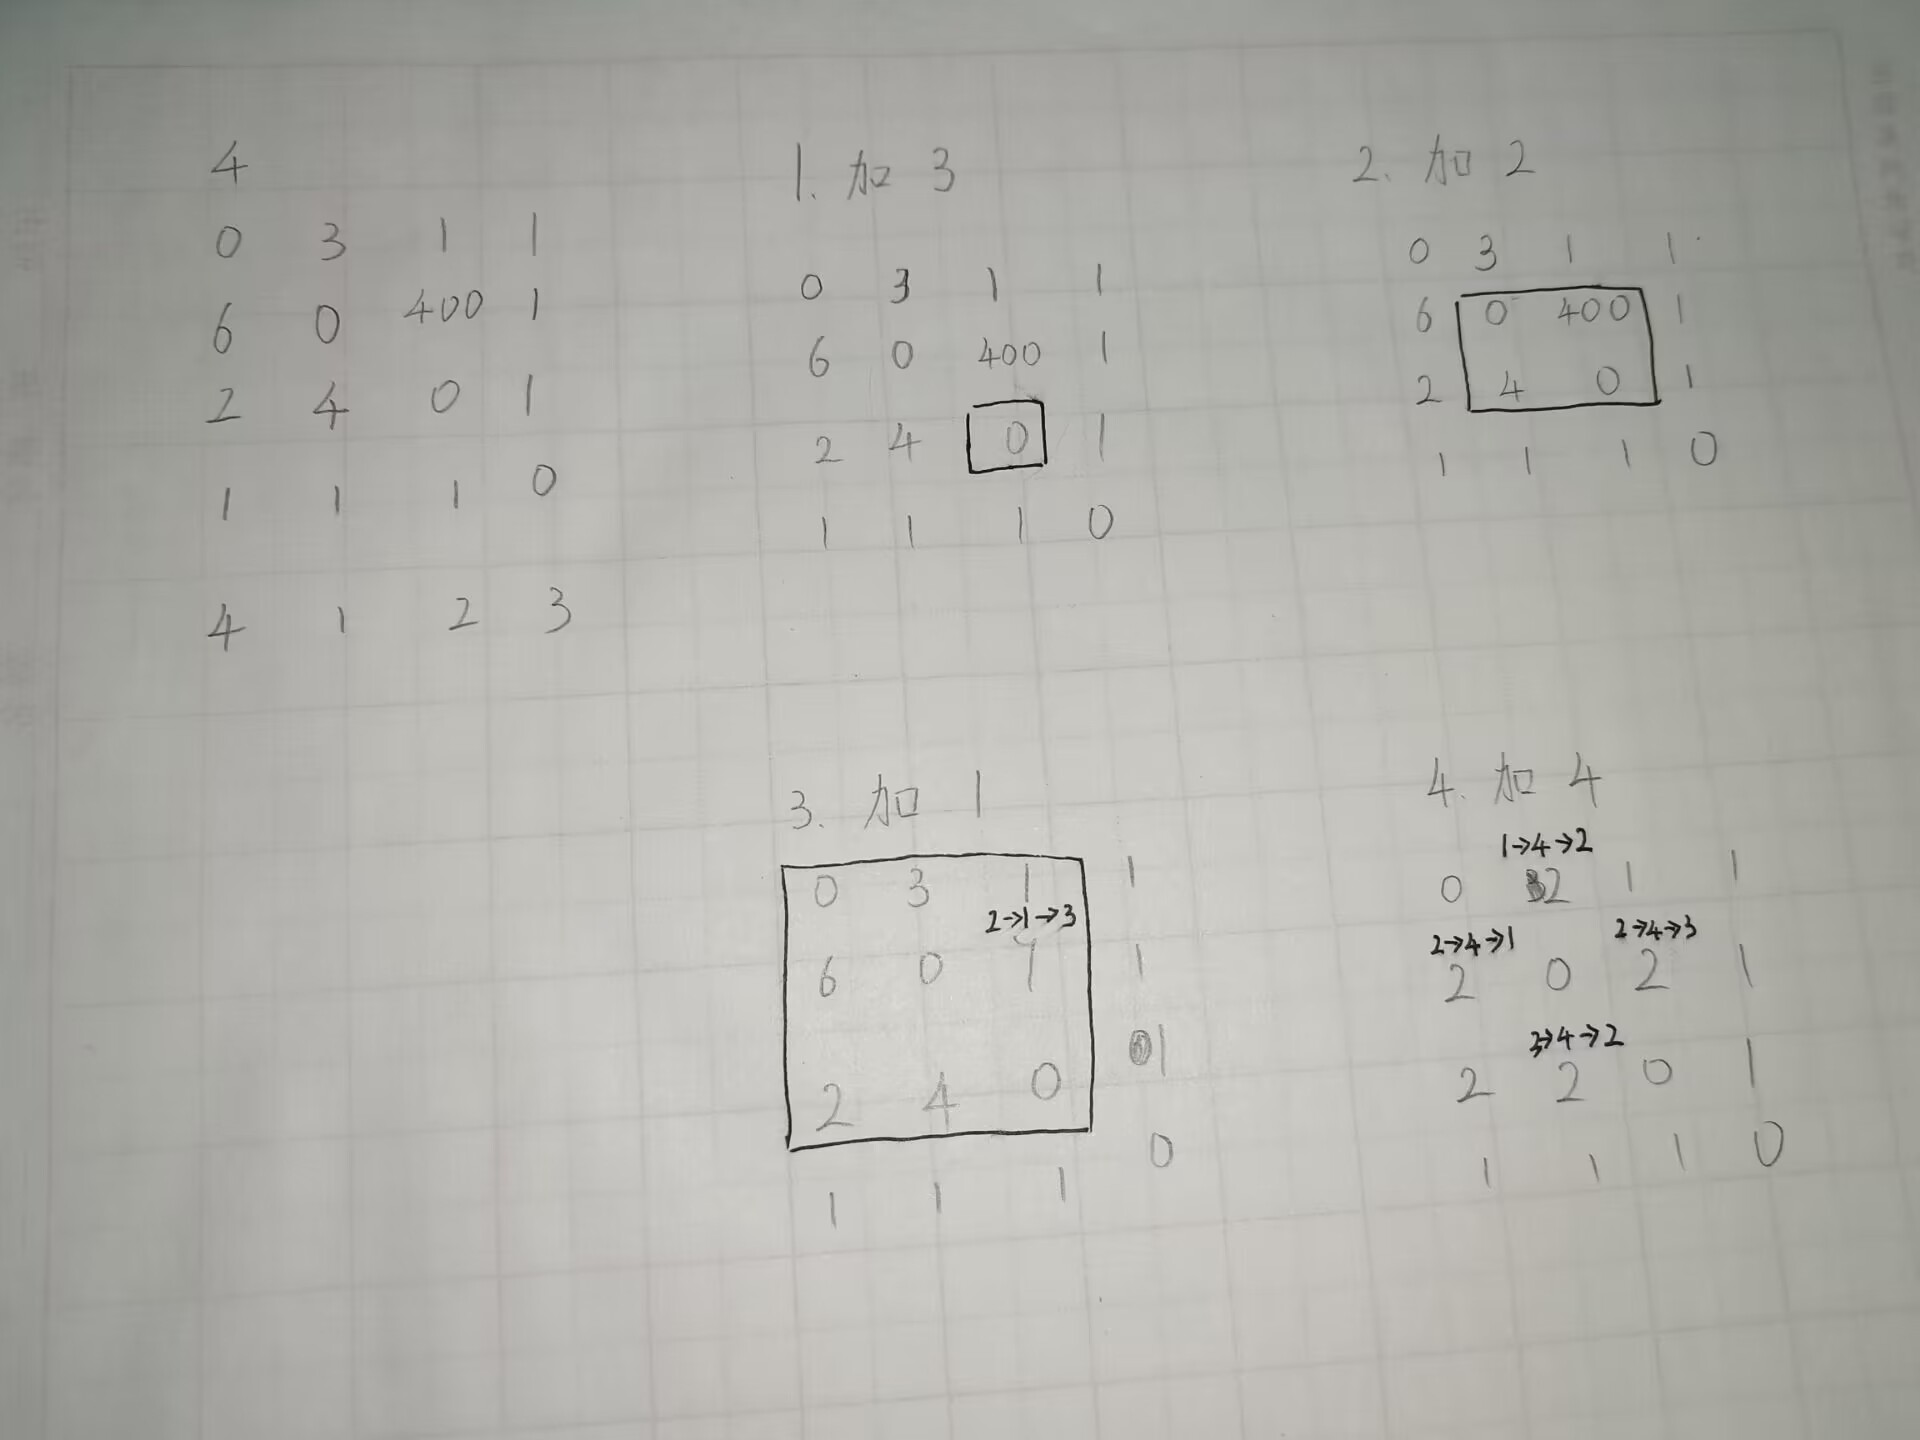 4
0 3 1 1
6 0 400 1
2 4 0 1
1 1 1 0
4 1 2 3
1. 加 3
0 3 1 1
6 0 400 1
2 4 0 1
1 1 1 0
2. 加 2
0 3 1 1
6 0 400 1
2 4 0 1
1 1 1 0
3. 加 1
0 3 1 1
2→1→3
6 0 1 1
2 4 0 1
1 1 1 0
4. 加 4
1→4→2
0 2 1 1
2→4→1 2→4→3
2 0 2 1
3→4→2
2 2 0 1
1 1 1 0